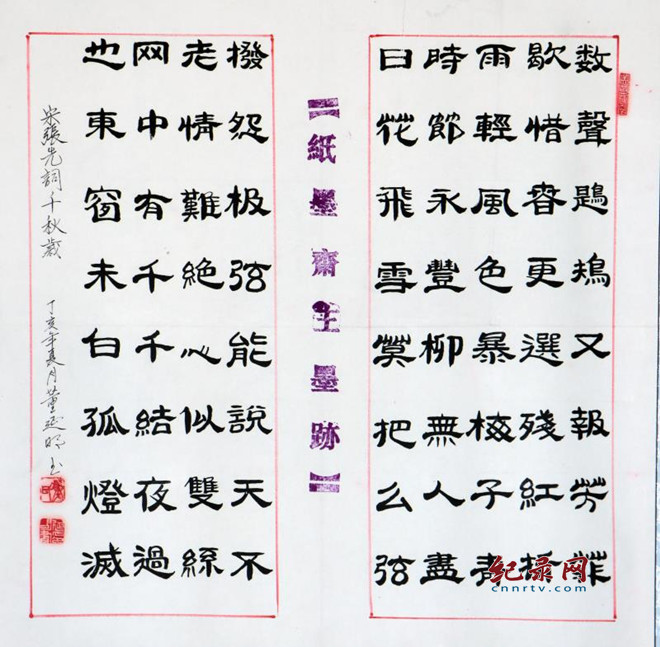 数聲鶗鴂又報芳菲
歇惜春更選殘紅折
雨輕風色暴梅子青
時節永豐柳無人盡
日花飛雪莫把么弦
【紙墨齋主墨跡】
撥怨极弦能說天不
老情難絕心似雙絲
网中有千千結夜過
也東窗未白孤燈滅
宋張先詞千秋歲
丁亥年夏月董
纪录网
cnnrtv.com